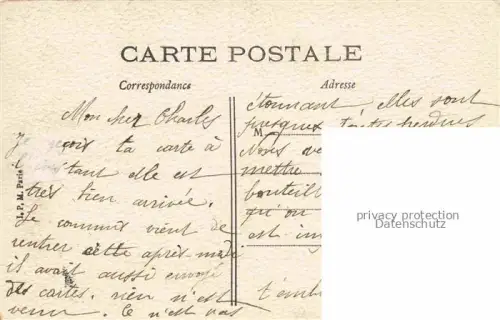 CARTE POSTALE
Correspondance
Adresse
I. P. M. Paris
Mon cher Charles
Je reçois ta carte à
l'instant elle est
très bien arrivée.
Le commis vient de
rentrer cette après-midi
il avait aussi envoyé
des cartes. rien n'est
venu. Ce n'est pas
étonnant, elles sont
presque toutes perdues
M
Nous
mettre
bouteil
qu'on
est im
t'emb
privacy protection
Datenschutz